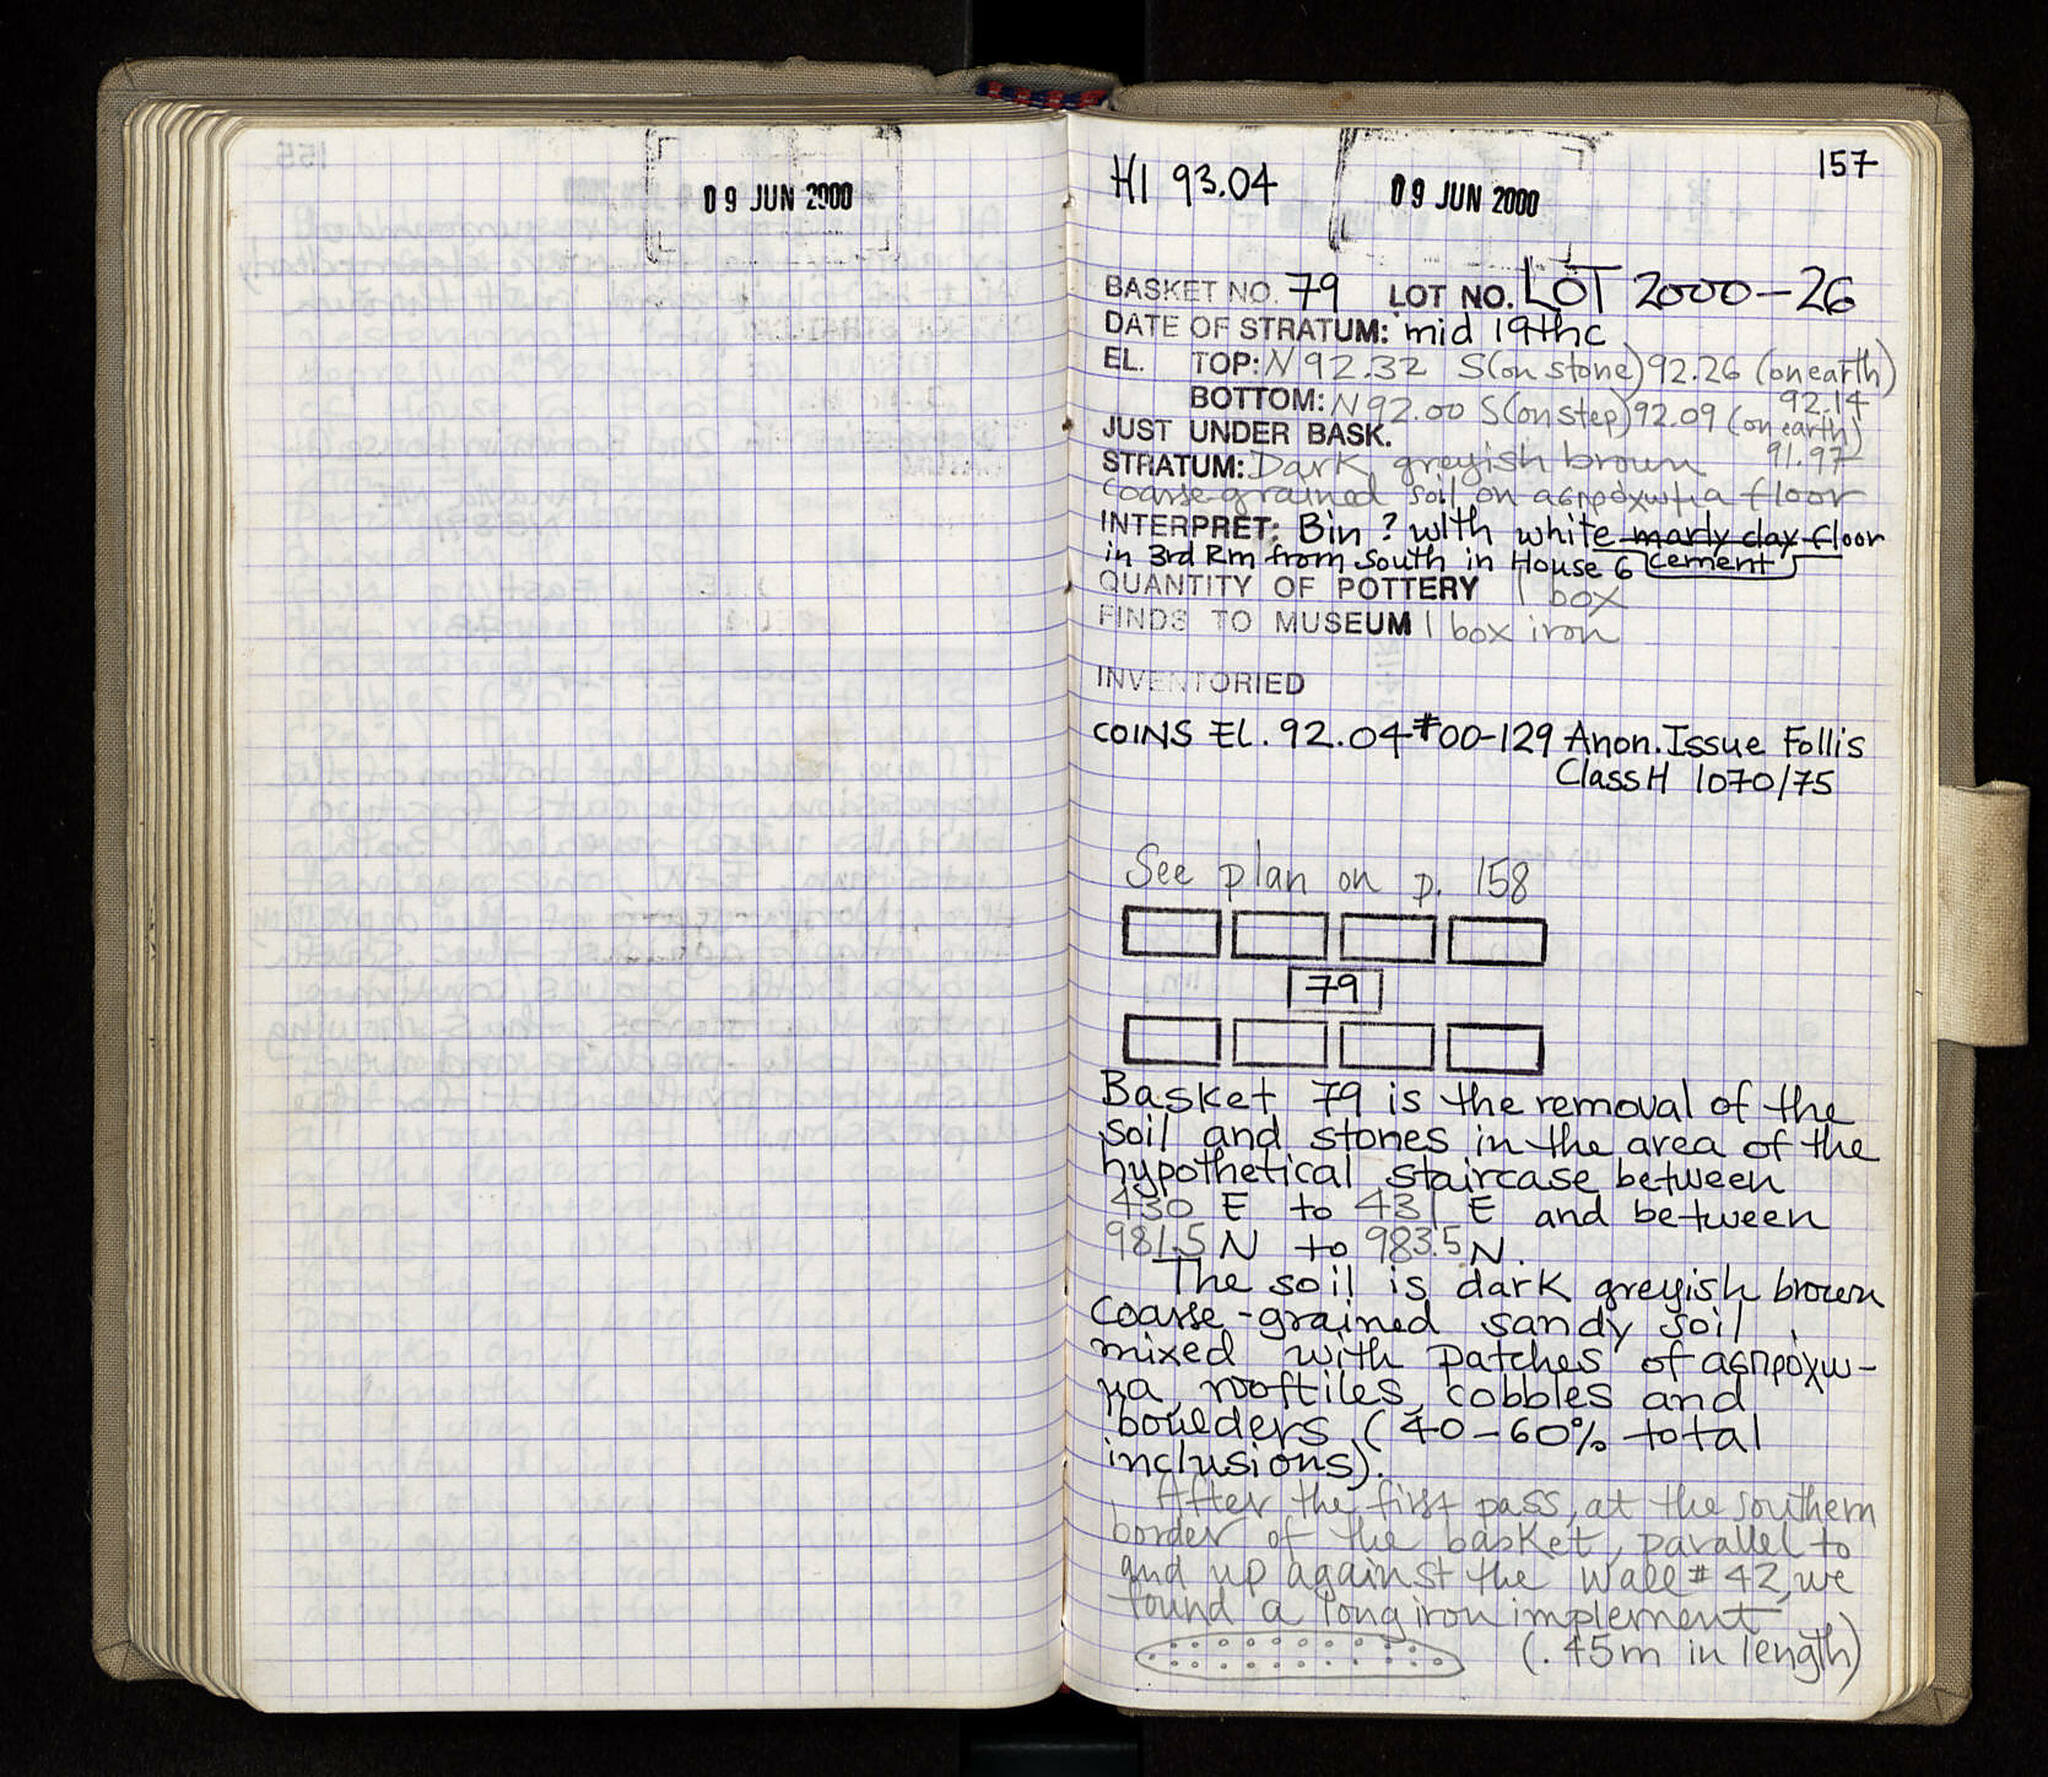 09 JUN 2000
H1 93.04
09 JUN 2000
157
BASKET NO. 79 LOT NO. LOT 2000-26
DATE OF STRATUM: mid 19thc
EL. TOP: N 92.32 S(on stone) 92.26 (on earth)
92.14
BOTTOM: N 92.00 S(on step) 92.09 (on earth)
91.97
JUST UNDER BASK.
STRATUM: Dark greyish brown
coarse-grained soil on ασπρόχωμα floor
INTERPRET: Bin? with white marly clay floor
in 3rd Rm from South in House 6 cement
QUANTITY OF POTTERY 1 box
FINDS TO MUSEUM 1 box iron
INVENTORIED
COINS El. 92.04 #00-129 Anon. Issue Follis
Class H 1070/75
See plan on p. 158
79
Basket 79 is the removal of the
soil and stones in the area of the
hypothetical staircase between
430 E to 431 E and between
981.5 N to 983.5 N.
The soil is dark greyish brown
coarse-grained sandy soil,
mixed with patches of ασπρόχω-
μα, rooftiles, cobbles and
boulders (40-60% total
inclusions).
After the first pass, at the southern
border of the basket, parallel to
and up against the Wall # 42, we
found a long iron implement
(.45m in length)